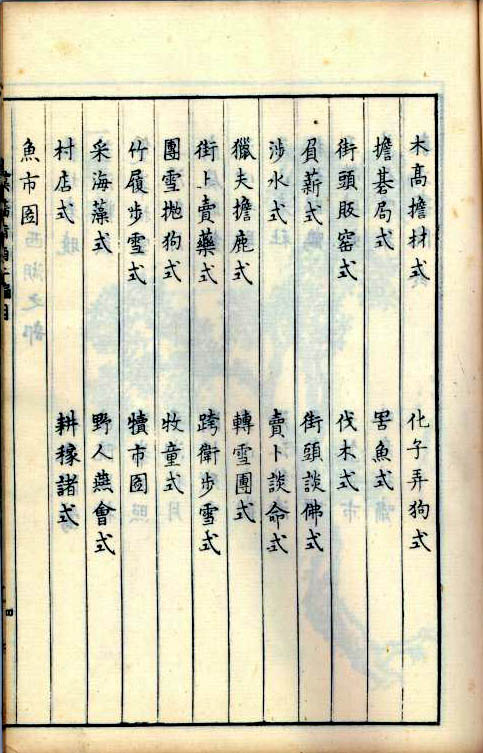 木高擔材式 化子弄狗式
擔碁局式 罟魚式
街頭販窑式 伐木式
負薪式 街頭談佛式
涉水式 賣卜談命式
獵夫擔鹿式 轉雪團式
街上賣藥式 跨衛步雪式
團雪拋狗式 牧童式
竹履步雪式 犢市圖
采海藻式 野人燕會式
村店式 耕稼諸式
魚市圖